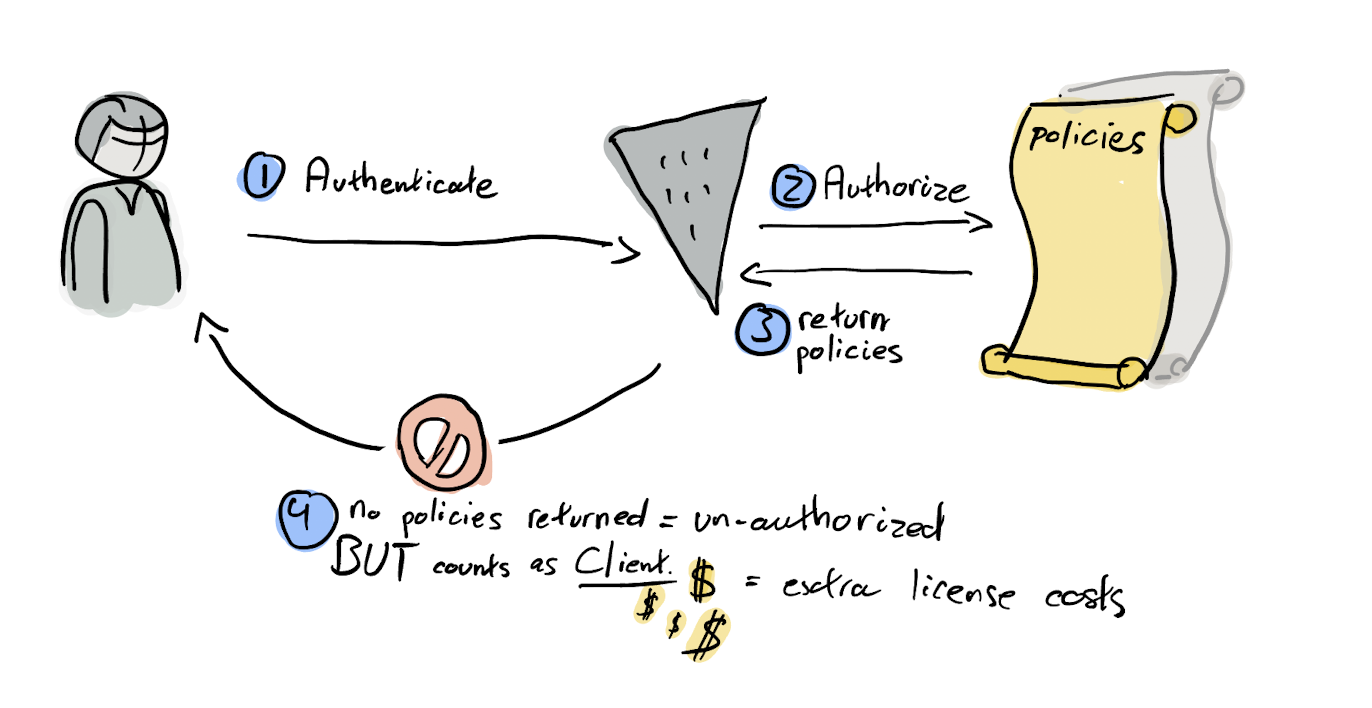 1 Authenticate
2 Authorize
policies
3 return
policies
4 no policies returned = un-authorized
BUT counts as Client. $ = extra license costs
$ $ $